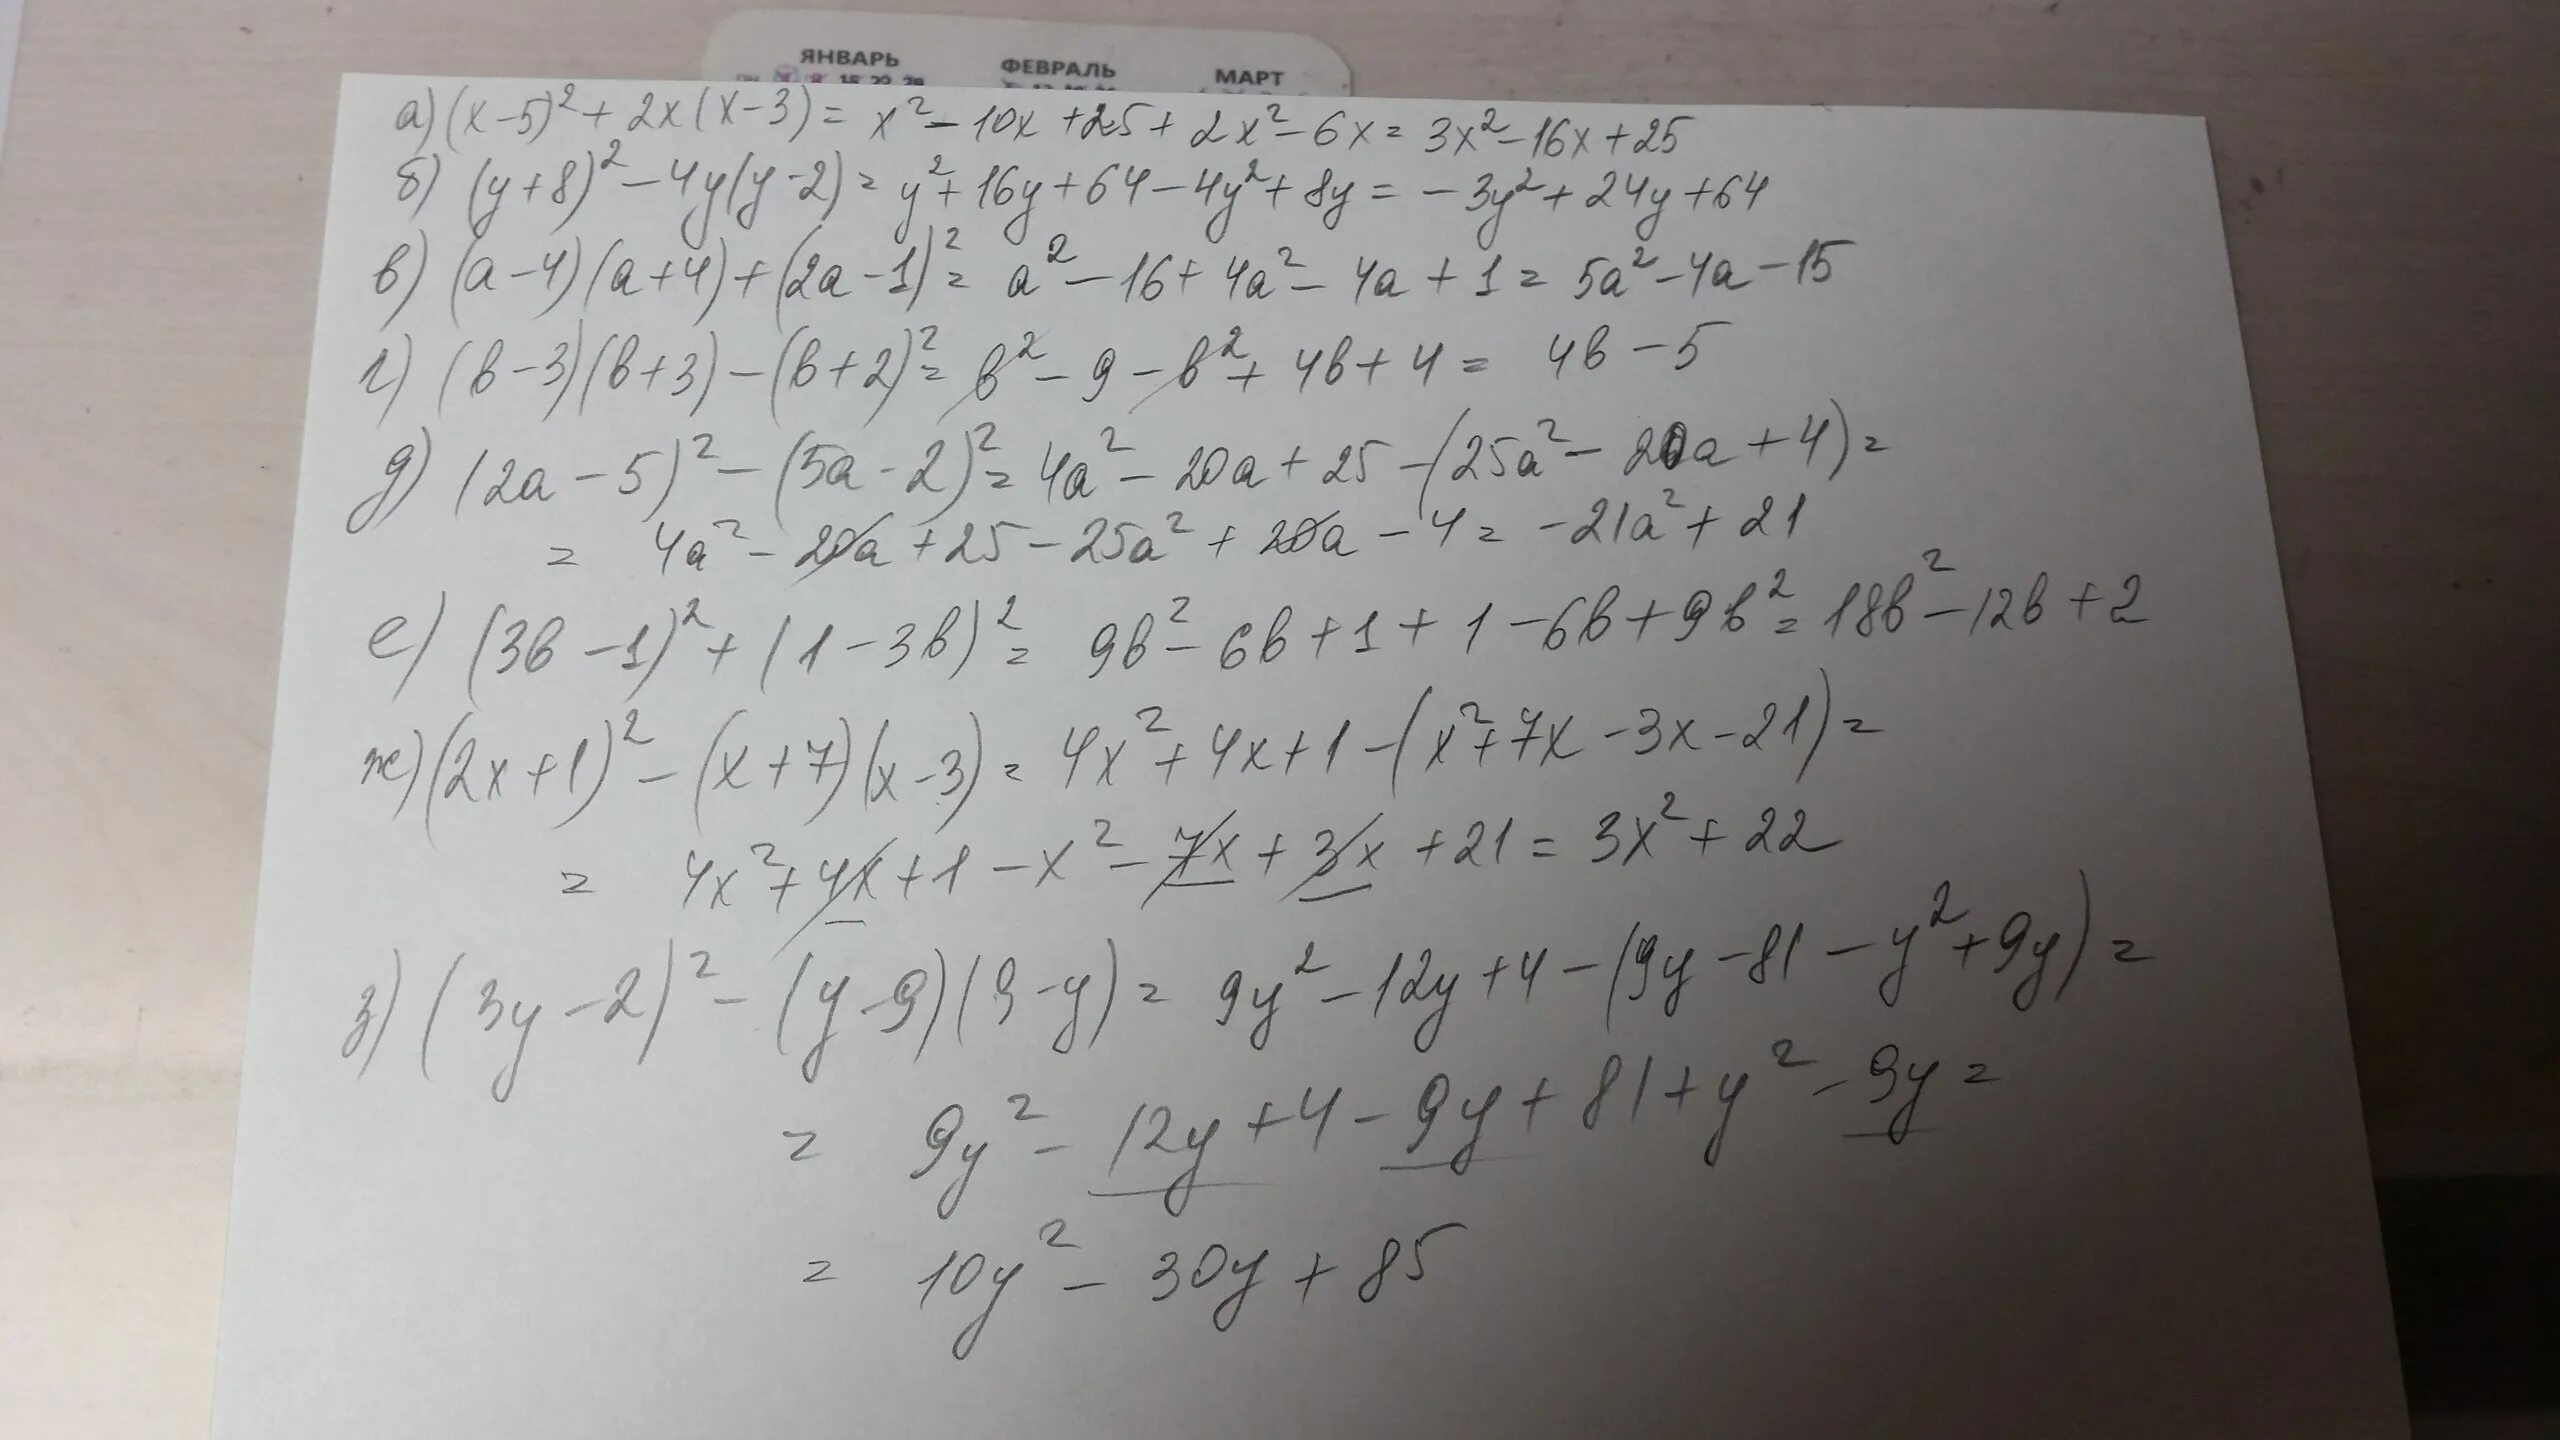 ЯНВАРЬ ФЕВРАЛЬ МАРТ
а) (x-5)² + 2x(x-3) = x² - 10x + 25 + 2x² - 6x = 3x² - 16x + 25
б) (y+8)² - 4y(y-2) = y² + 16y + 64 - 4y² + 8y = -3y² + 24y + 64
в) (a-4)(a+4) + (2a-1)² = a² - 16 + 4a² - 4a + 1 = 5a² - 4a - 15
г) (b-3)(b+3) - (b+2)² = b² - 9 - b² + 4b + 4 = 4b - 5
д) (2a-5)² - (5a-2)² = 4a² - 20a + 25 - (25a² - 20a + 4) =
= 4a² - 20a + 25 - 25a² + 20a - 4 = -21a² + 21
е) (3b-1)² + (1-3b)² = 9b² - 6b + 1 + 1 - 6b + 9b² = 18b² - 12b + 2
ж) (2x+1)² - (x+7)(x-3) = 4x² + 4x + 1 - (x² + 7x - 3x - 21) =
= 4x² + 4x + 1 - x² - 7x + 3x + 21 = 3x² + 22
з) (3y-2)² - (y-9)(9-y) = 9y² - 12y + 4 - (9y - 81 - y² + 9y) =
= 9y² - 12y + 4 - 9y + 81 + y² - 9y =
= 10y² - 30y + 85